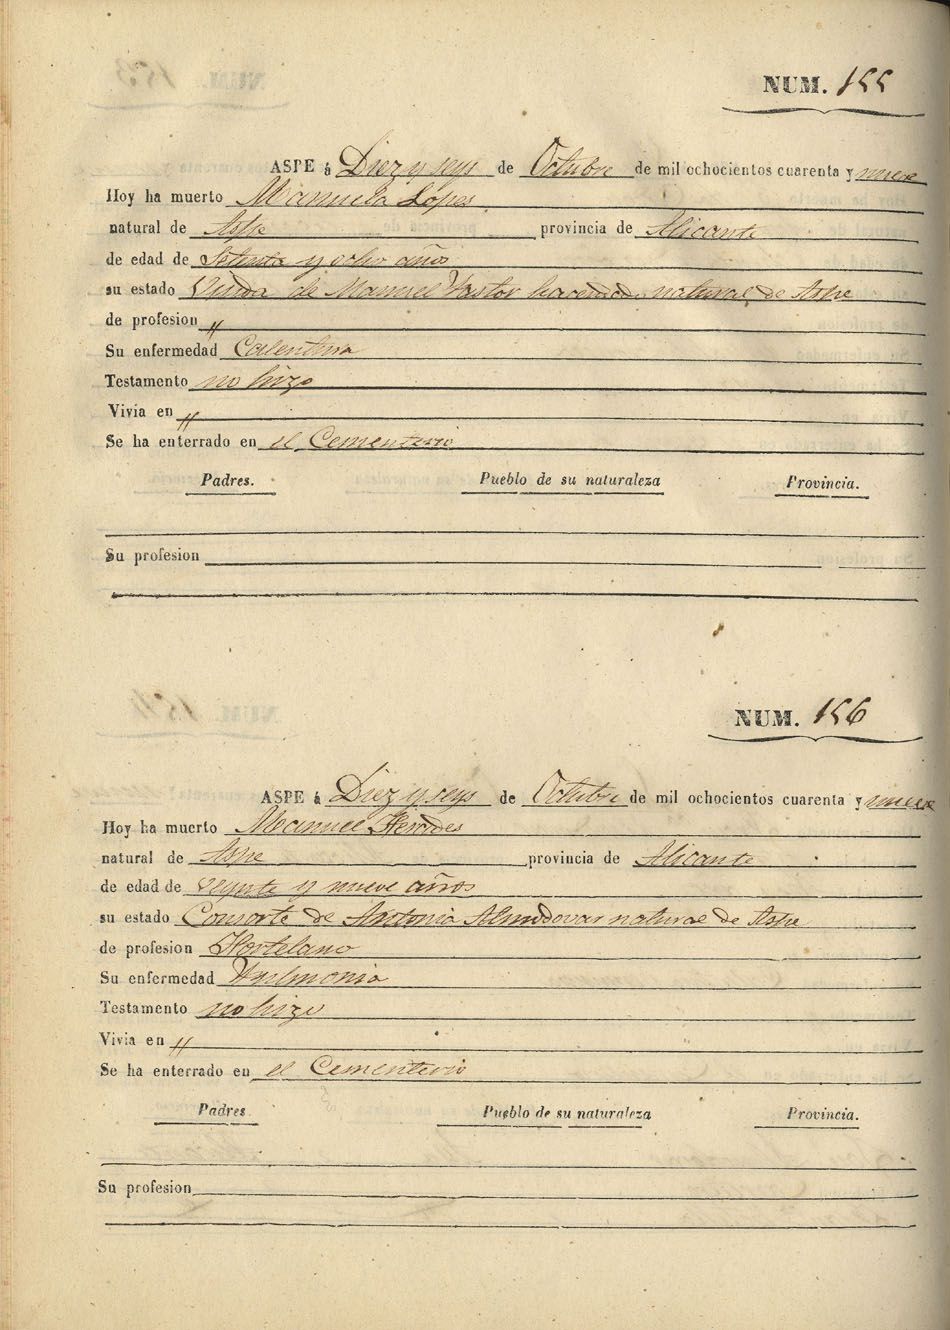 NUM. 155
ASPE á Diez y seys de Octubre de mil ochocientos cuarenta y nueve
Hoy ha muerto Manuela Lopes
natural de Aspe provincia de Alicante
de edad de Setenta y ocho años
su estado Viuda de Manuel Pastor hacendado natural de Aspe
de profesion "
Su enfermedad Calentura
Testamento no hizo
Vivia en "
Se ha enterrado en el Cementerio
Padres. Pueblo de su naturaleza Provincia.
Su profesion
NUM. 156
ASPE á Diez y seys de Octubre de mil ochocientos cuarenta y nueve
Hoy ha muerto Manuel
natural de Aspe provincia de Alicante
de edad de Veynte y nueve años
su estado Consorte de Antonia Almodovar natural de Aspe
de profesion Hortelano
Su enfermedad Pulmonia
Testamento no hizo
Vivia en "
Se ha enterrado en el Cementerio
Padres. Pueblo de su naturaleza Provincia.
Su profesion